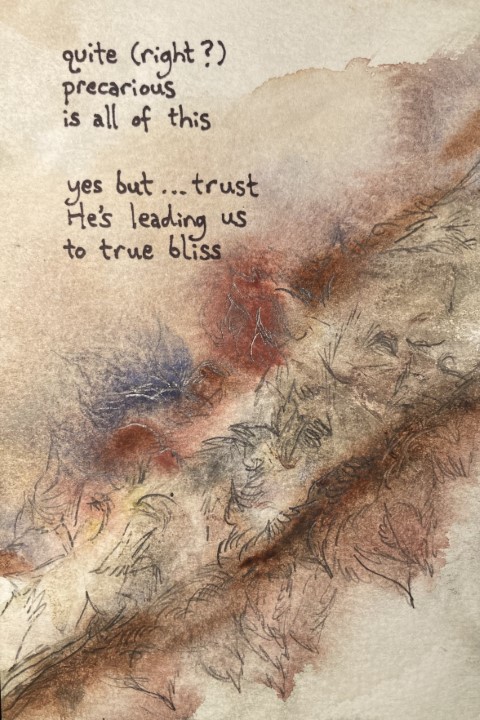 quite (right?)
precarious
is all of this
yes but ... trust
He's leading us
to true bliss